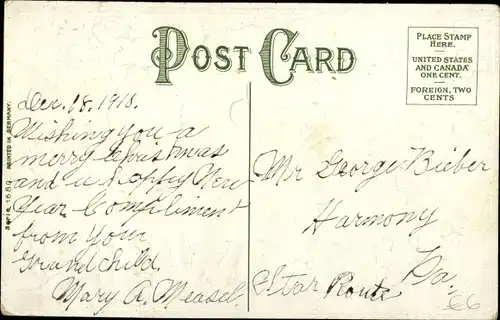 POST CARD
PLACE STAMP
HERE.
UNITED STATES
AND CANADA
ONE CENT.
FOREIGN, TWO
CENTS
PRINTED IN GERMANY.
Serie 1889
Dec. 18. 1910.
Wishing you a
merry Christmas
and a happy New
Year Compliment
from your
Grand Child.
Mary A. Measel.
Mr George Bieber
Harmony
Pa.
Star Route
66